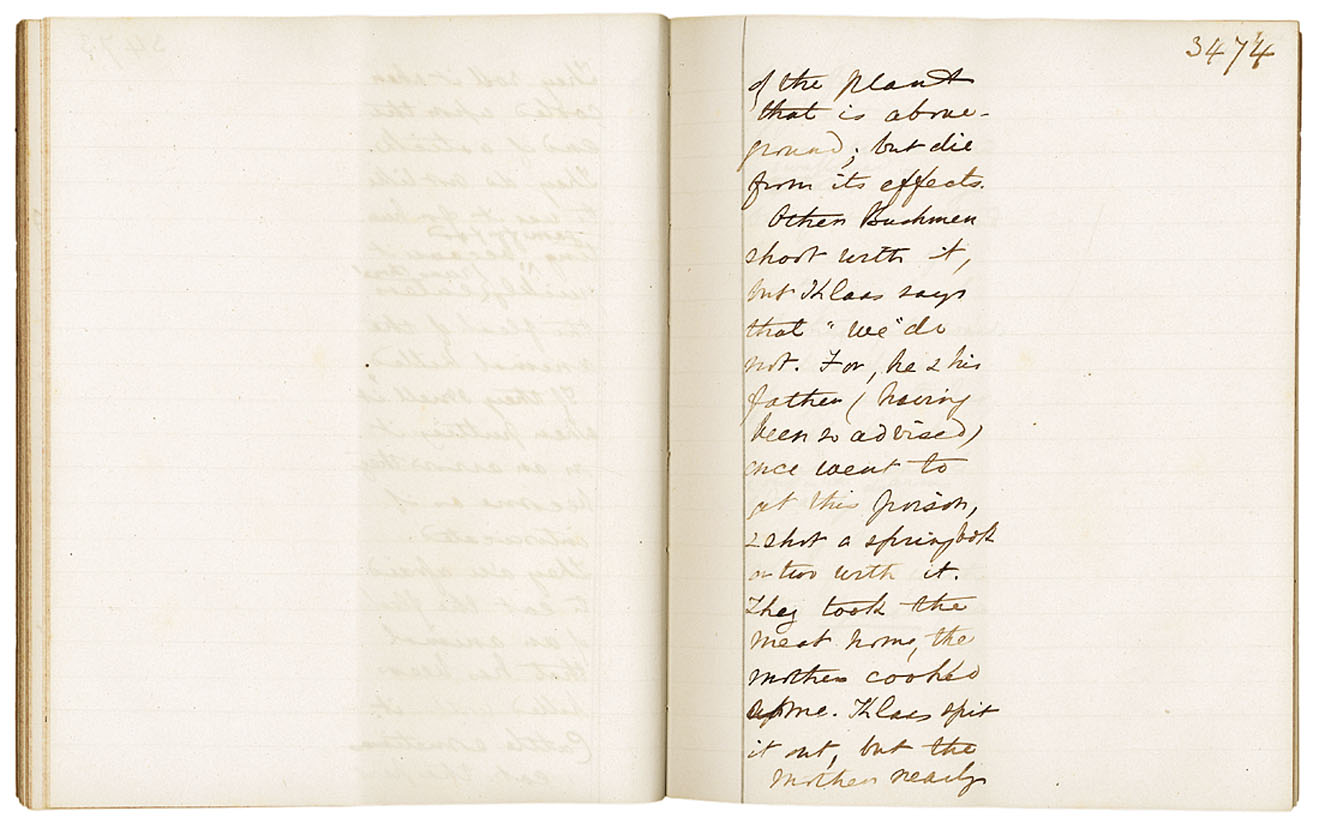 3474
of the plant
that is above-
ground; but die
from its effects.
Other Bushmen
shoot with it,
but Klaas says
that "we" do
not. For, he & his
father (having
been so advised)
once went to
get this poison,
& shot a springbok
or two with it.
They took the
meat home, the
mother cooked
some. Klaas spit
it out, but the
mother nearly